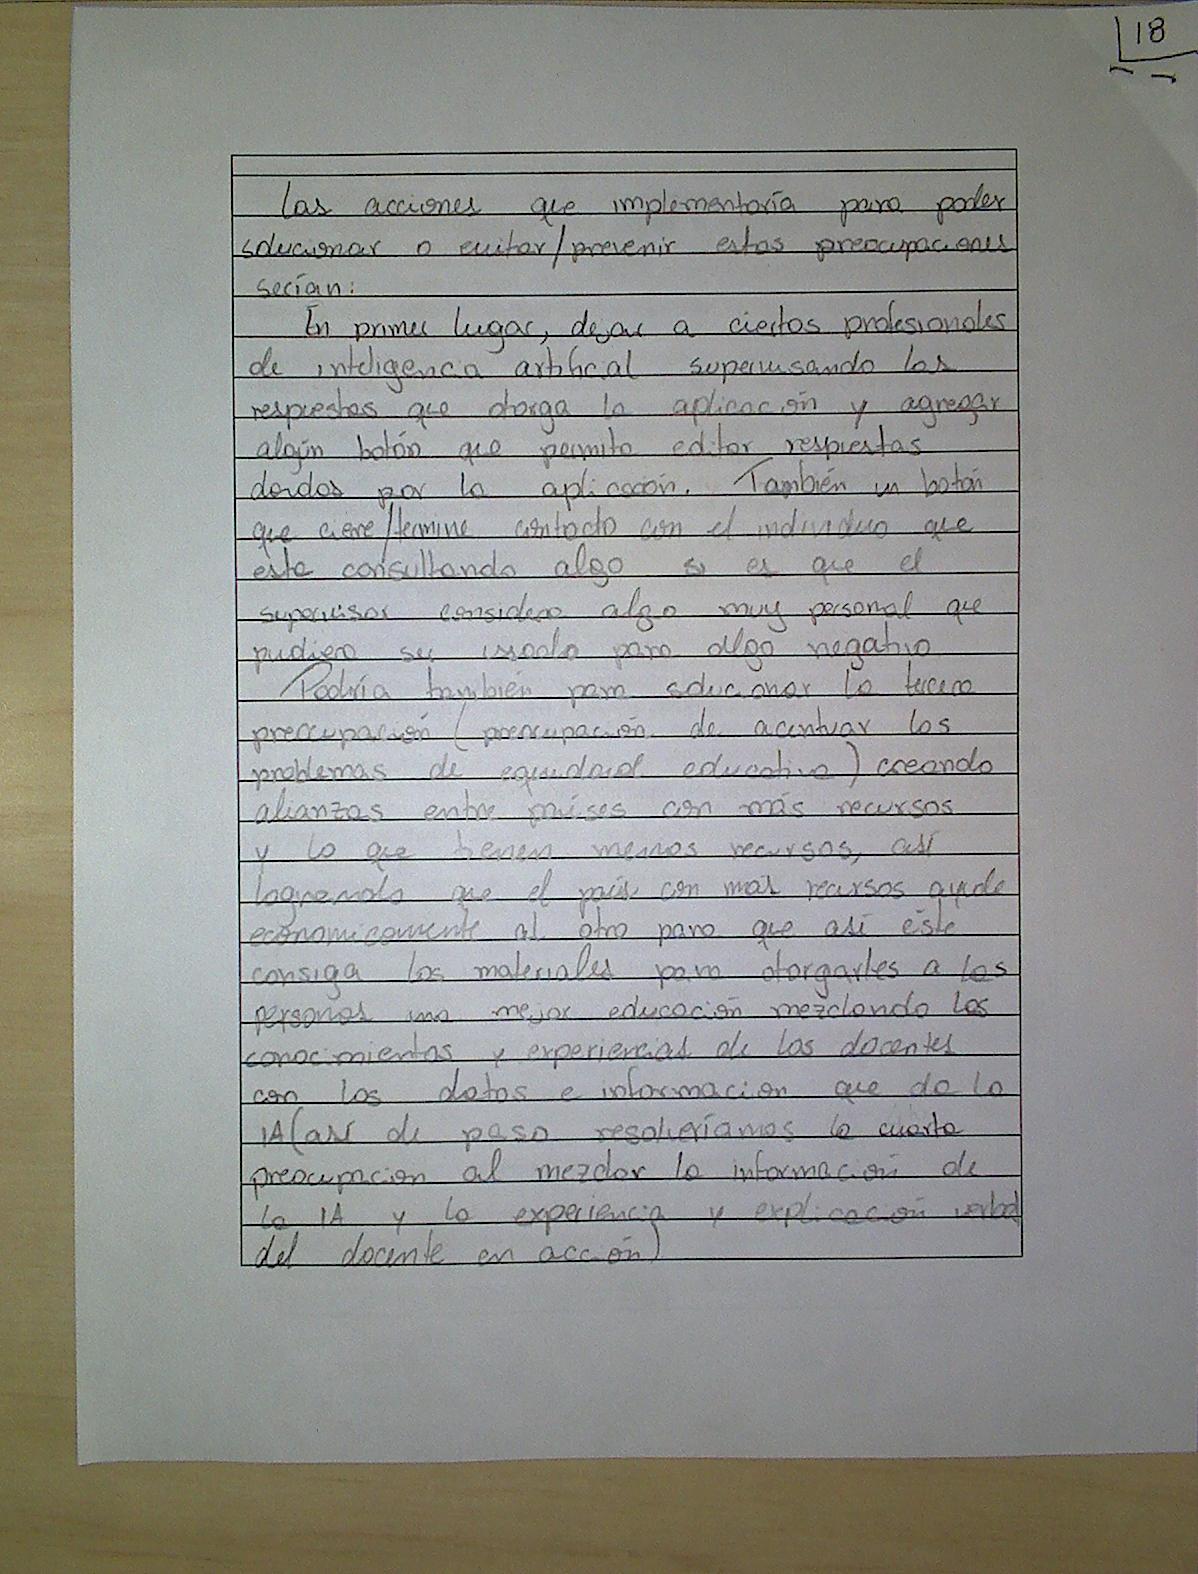 18
Las acciones que implementaría para poder
solucionar o evitar/prevenir estas preocupaciones
serían:
En primer lugar, dejar a ciertos profesionales
de inteligencia artificial supervisando las
respuestas que otorga la aplicación y agregar
algún botón que permita editar respuestas
dadas por la aplicación. También un botón
que cierre/termine contacto con el individuo que
este consultando algo si es que el
supervisor considera algo muy personal que
pudiera ser usado para algo negativo
Podría también para solucionar la tercera
preocupación (preocupación de acentuar los
problemas de equidad educativa) creando
alianzas entre países con más recursos
y lo que tienen menos recursos, así
logrando que el país con mas recursos ayude
economicamente al otro para que así este
consiga los materiales para otorgarles a las
personas una mejor educación mezclando los
conocimientos y experiencias de los docentes
con los datos e informacion que da la
IA (así de paso resolveríamos la cuarta
preocupacion al mezclar la información de
la IA y la experiencia y explicación verbal
del docente en acción)